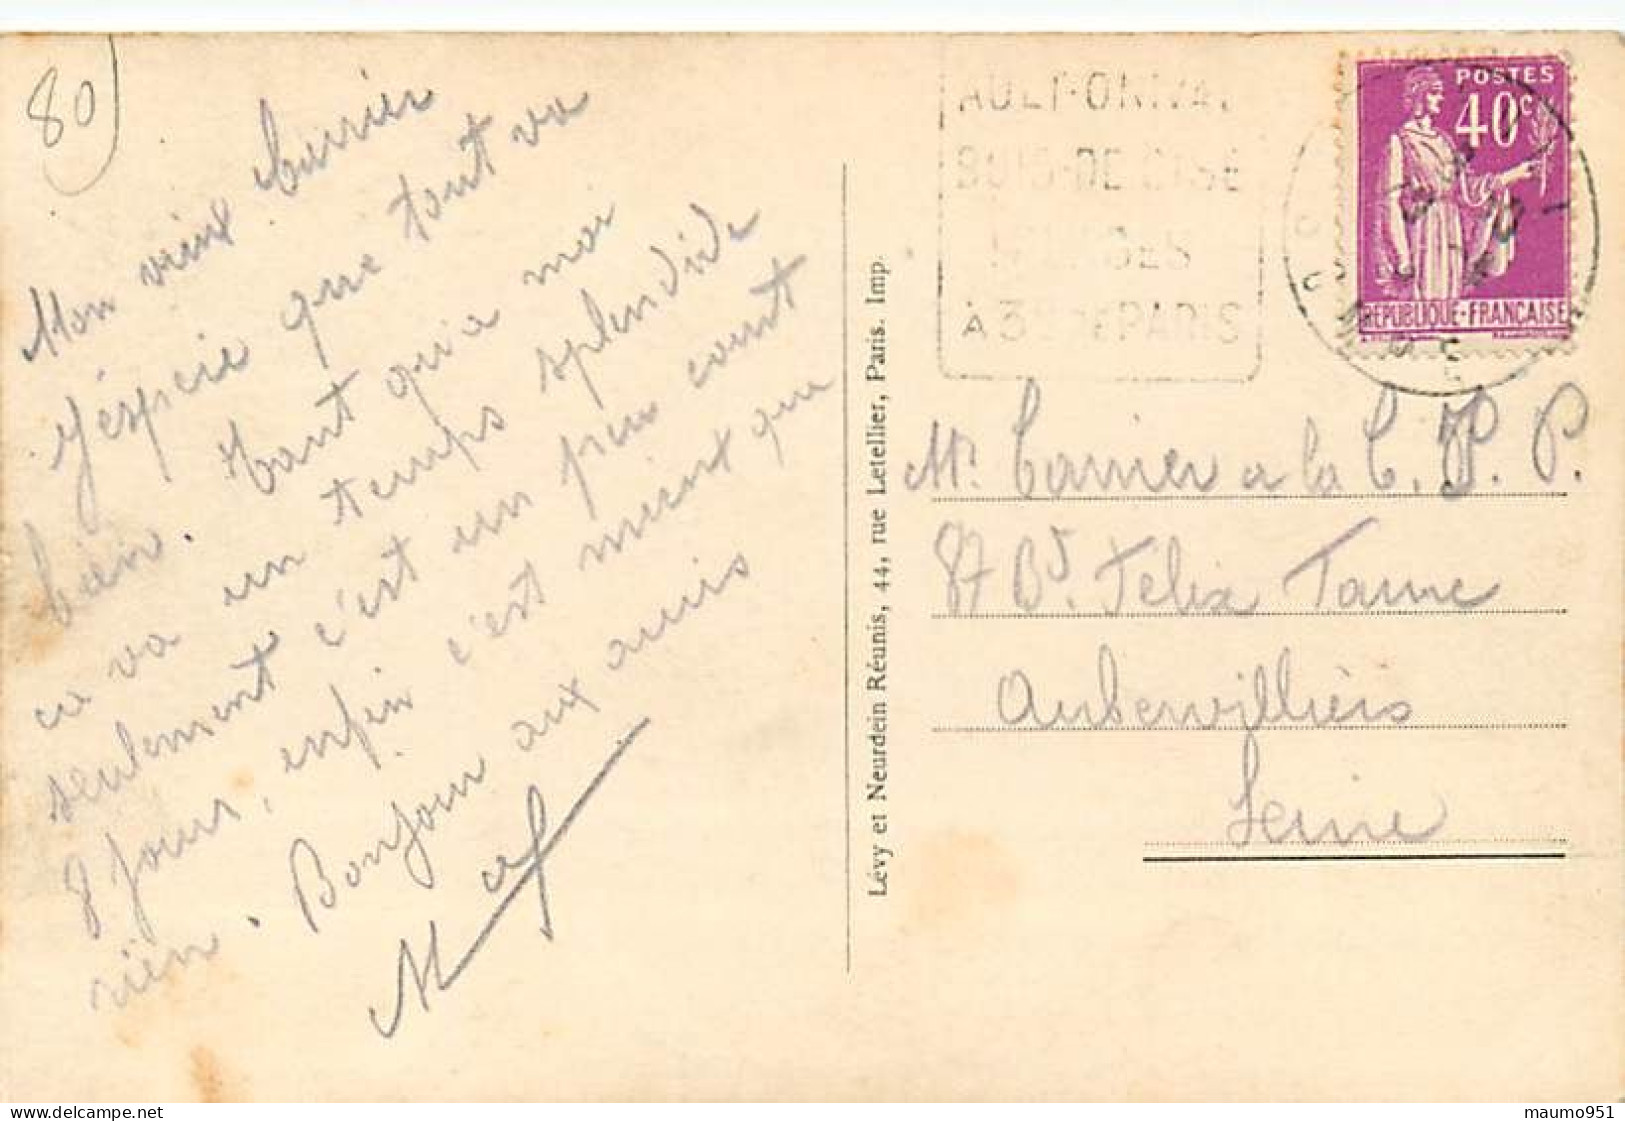 80
Mon vieux Carrier
J'éspère que tout va
bien. Tant qu'a moi
ca va un temps splendide
seulement c'est un peu court
8 jours, enfin c'est mieux que
rien. Bonjour aux amis
Lévy et Neurdein Réunis, 44, rue Letellier, Paris. Imp.
BOIS-DE-CISE
PLAGES
À 3H DE PARIS
POSTES
40c
REPUBLIQUE-FRANÇAISE
Mr. Carrier a la C. P. P.
87 Bd. Felix Faure
Aubervilliers
Seine
maumo951